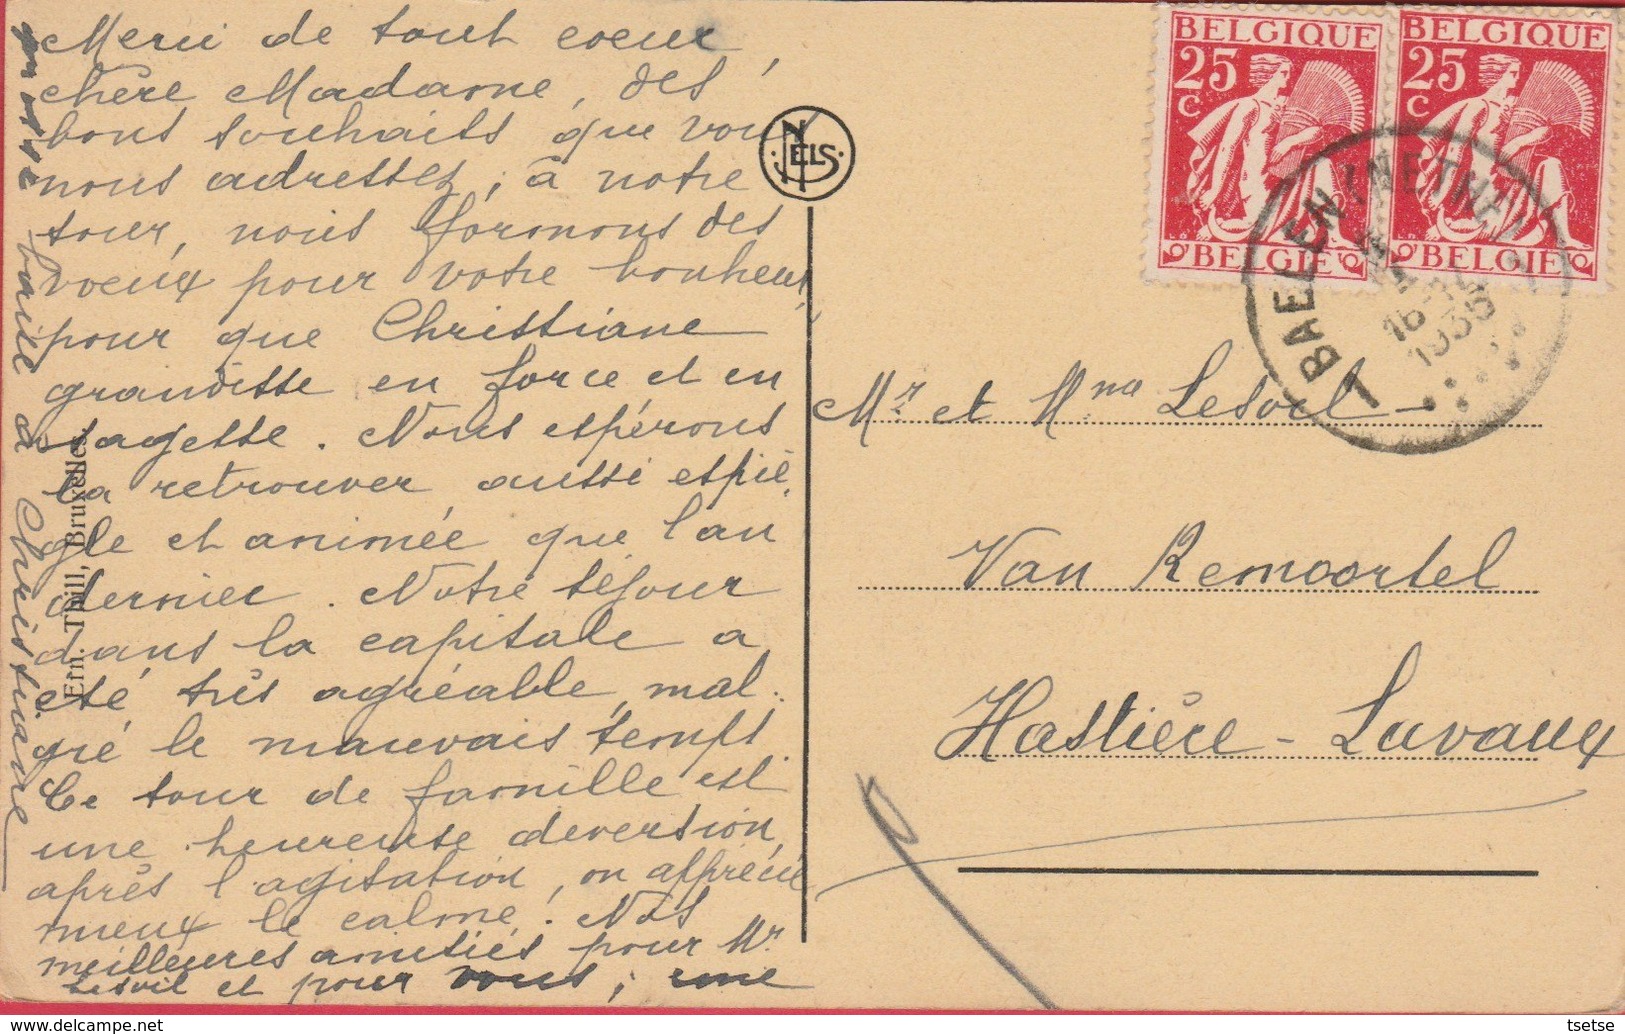 Merci de tout coeur,
chère Madame, des
bons souhaits que vous
nous adressez, à notre
tour, nous formons des
voeux pour votre bonheur,
pour que Christiane
grandisse en force et en
sagesse. Nous espérons
la retrouver aussi espiè
gle et animée que l'an
dernier. Notre séjour
dans la capitale a
été très agréable, mal
gré le mauvais temps.
Ce tour de famille est
une heureuse diversion,
après l'agitation, on apprécie
mieux le calme. Nos
meilleures amitiés pour Mr
Lesoil et pour vous, une
grosse baise à Christiane
Ern. Thill, Bruxelles.
NELS
BELGIQUE
25
C
BELGIE
BELGIQUE
25
C
BELGIE
BAELEN (NETHE)
16
1935
1
Mr et Mme Lesoil -
Van Remoortel
Hastière - Lavaux
delcampe.net
tsetse